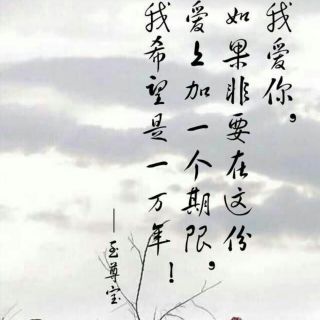 我爱你，
如果非要在这份
爱上加一个期限，
我希望是一万年！
—至尊宝